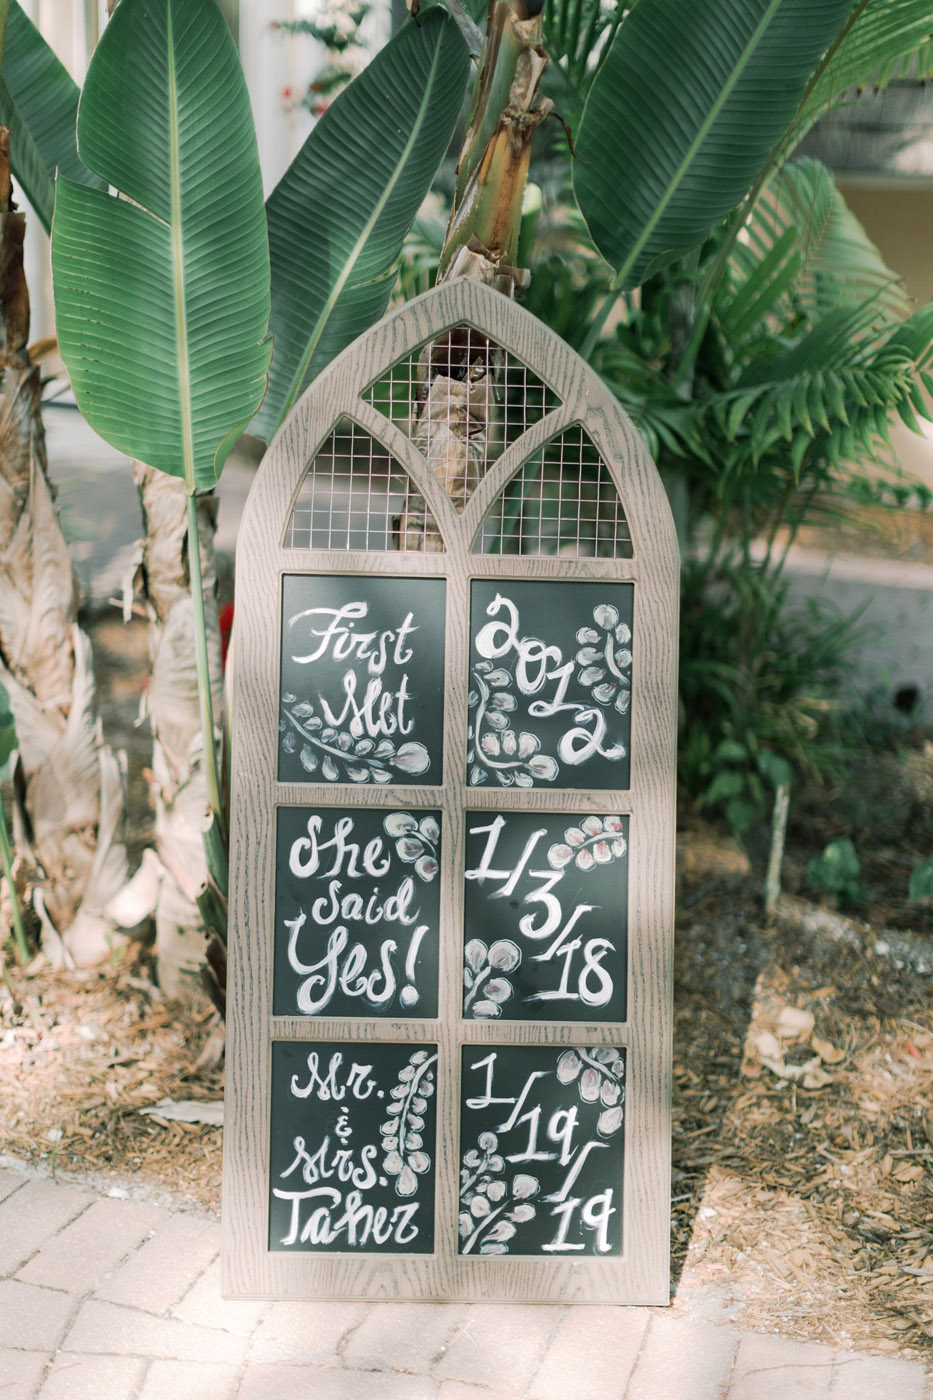 First
Met
2012
She
Said
Yes!
1/3/18
Mr.
&
Mrs.
Taher
1/19/19